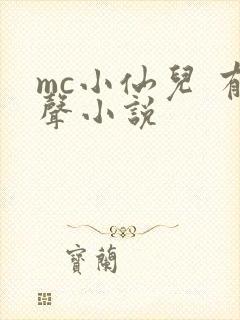 mc小仙兒 有
聲小說
寶蘭